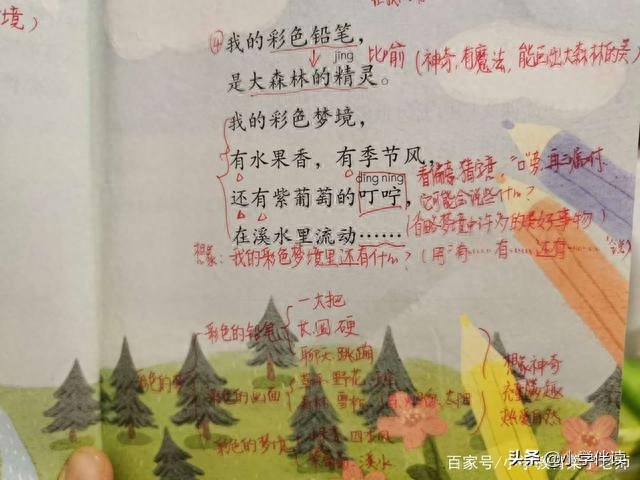 境）
④我的彩色铅笔，
jīng
比喻（神奇，有魔法，能画出大森林的美）
是大森林的精灵。
我的彩色梦境，
有水果香，有季节风，
dīng níng
还有紫葡萄的叮咛，
看偏旁，猜字意
它可能会说些什么？
在溪水里流动……
（省略梦境中许多的美好事物）
想象：我的彩色梦境里还有什么？（用"有……有……还有……"
彩色的铅笔
一大把
长 圆 硬
聊天 跳蹦
彩色的画面
草坪 野花
森林 雪松
太阳
彩色的梦境
四季风
溪水
想象神奇
充满童趣
热爱自然
百家号/小学教育栾老师
头条@小学伴读